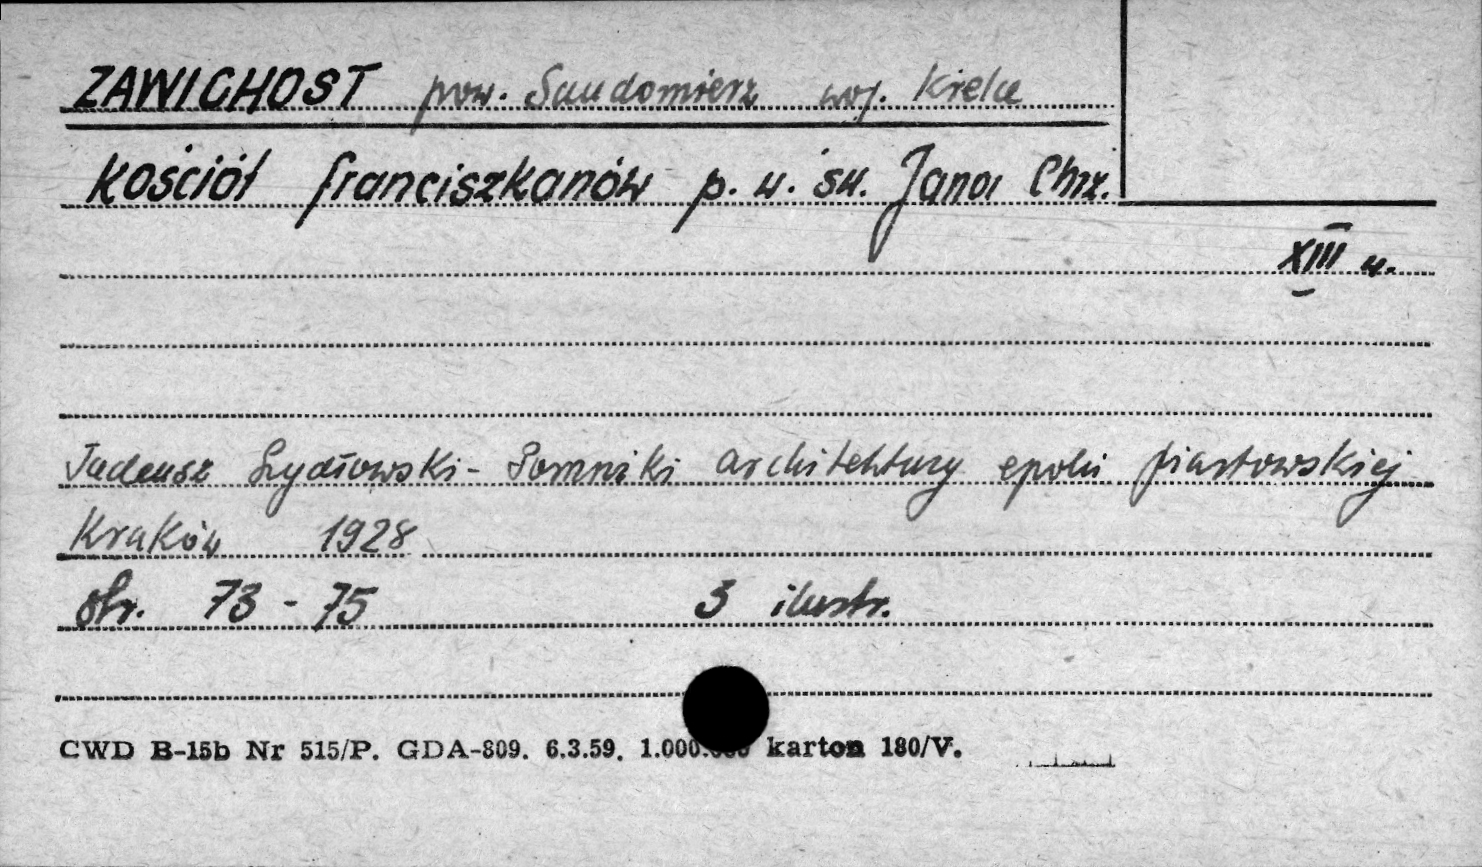 ZAWICHOST pow. Sandomierz woj. Kielce
Kościół franciszkanów p. w. św. Jana Chrz.
XIII w.
Tadeusz Szydłowski - Pomniki architektury epoki piastowskiej
Kraków 1928
str. 73 - 75 3 ilustr.
CWD B-15b Nr 515/P. GDA-809. 6.3.59. 1.000.000 karton 180/V.